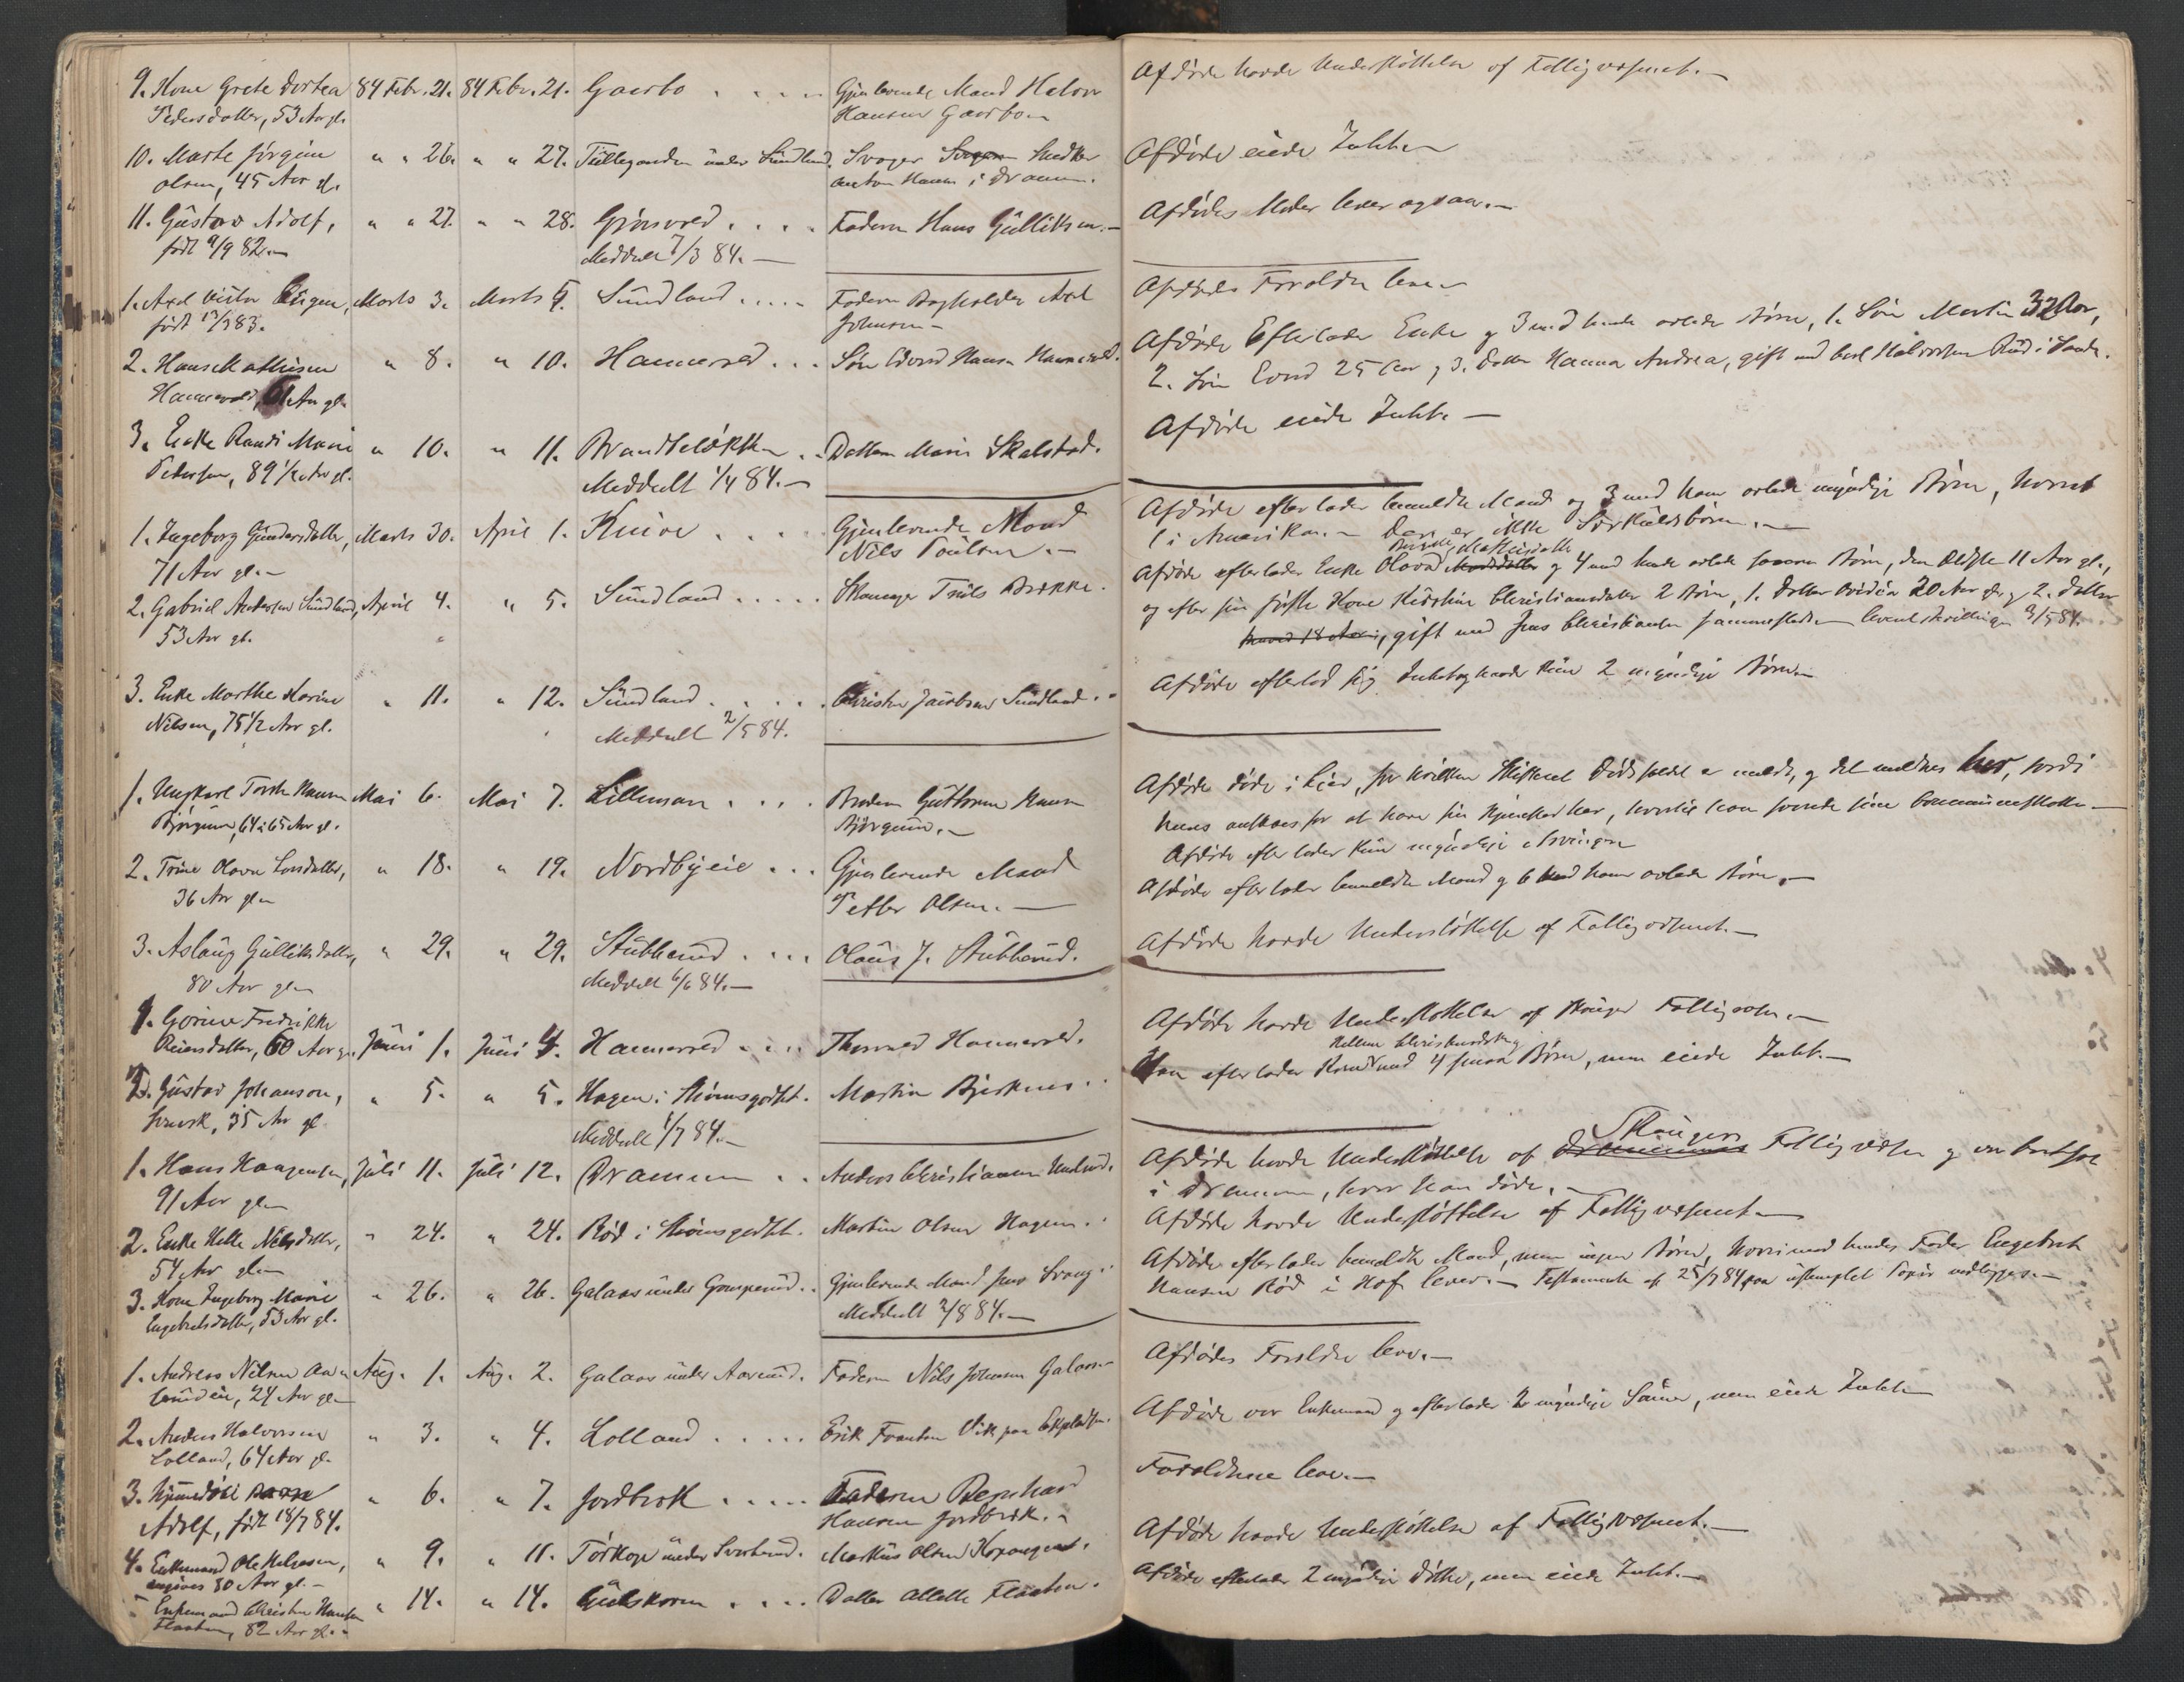 9. Kone Grete Dortea 84 Febr. 21. 84 Febr. 21. Gaarbo . . . . Gjenlevende Mand Halvor Afdøde havde Understøttelse af Fattigvæsenet. —
Pedersdatter, 53 Aar gl. Hansen Gaarbo —
10. Marte Jørgine " " 26. " " 27. under Sundland. Svoger Snedker Afdøde eiede Intet —
Olsen, 45 Aar gl. Anton Hansen i Drammen.
11. Gustav Adolf, " " 27. " " 28. . . . . Faderen Hans Gulliksen. — Afdødes Moder lever ogsaa. —
født 9/9 82. — Meddelt 7/3 84. —
1. Axel Victor Eugen, Marts 3. Marts 5. Sundland . . . . Faderen Bogholder Axel Afdødes Forældre leve —
født 13/3 83. Johnsen —
2. Hans Mathisen " 8. " 10. Hannevold . . . Søn Edvard Hansen Hannevold. Afdøde Efterlader Enke og 3 med hende avlede Børn, 1. Søn Martin 32 Aar,
Hannevold, 61 Aar gl. 2. Søn Edvard 25 Aar og 3. Datter Hanna Andrea, gift med Carl Halvorsen Rud i Sande.
3. Enke Randi Marie " 10. " 11. Brandteløkken . . Datteren Marie Skalstad. Afdøde eiede Intet. —
Pedersen, 89 1/2 Aar gl. Meddelt 1/4 84. —
1. Ingeborg Gundersdatter, Marts 30. April 1. Knive . . . . Gjenlevende Mand Afdøde efterlader bemeldte Mand og 3 med ham avlede myndige Børn, hvoraf
71 Aar gl. — Nils Poulsen. — 1 i Amerika. — Der er ikke Særkuldsbørn. —
2. Gabriel Andersen Sundland, April 4. " 5. Sundland . . . . . Truls Brekke. Afdøde efterlader Enke Olava Mathisdatter og 4 med hende avlede Børn, den ældste 11 Aar gl.,
53 Aar gl. og efter sin første Kone Kirstine Christiansdatter 2 Børn, 1. Datter 20 Aar gl. og 2. Datter
gift med Jens Christiansen sammesteds. 3/5 84.
3. Enke Marthe Karine " 11. " 12. Sundland . . . . . Christen Jacobsen Sundland. Afdøde efterlod sig Intet og havde kun 2 myndige Børn. —
Nilsen, 75 1/2 Aar gl. Meddelt 2/5 84.
1. Ungkarl Hansen Mai 6. Mai 7. Lilleman . . . . Broderen Guttorm Hansen Afdøde døde i Lier, for hvilken Skifteret Dødsfaldet er meldt, og det meldes her, fordi
Bjørgum, 64 à 65 Aar gl. Bjørgum. — hans antages for at have sin Hjemsted her, hvortil han svarede sine Communeskatter. —
Afdøde efterlader kun myndige Arvinger
2. Trine Olava Larsdatter, " 18. " 19. Nordbyeie . . . Gjenlevende Mand Afdøde efterlader bemeldte Mand og 6 med ham avlede Børn. —
36 Aar gl. — Petter Olsen. —
3. Aslaug Gulliksdatter, " 29. " 29. Stubberud . . . . Olaus J. Stubberud. Afdøde havde Understøttelse af Fattigvæsenet. —
80 Aar gl. — Meddelt 6/6 84. —
1. Gorine Fredrikke
Reiersdatter, 60 Aar gl. Juni 1. Juni 4. Hannevold . . . . Thorvald Hannevold. Afdøde havde Understøttelse af Skoger Fattigvæsen. —
2. Gustav Johanson, " 5. " 5. Hagen i Strømsgodset. Martin Bjerknes. Han efterlader Kone med 4 smaa Børn, men eiede Intet. —
svensk, 35 Aar gl. Meddelt 1/7 84. —
1. Hans Haagensen, Juli 11. Juli 12. Drammen . . Anders Christiansen Afdøde havde Understøttelse af Skoger Fattigvæsen og var bortsat
91 Aar gl. — i Drammen, hvor han døde. —
2. Enke Helle Nilsdatter, " 24. " 24. Rød i Strømsgodset. Martin Olsen Hagen. Afdøde havde Understøttelse af Fattigvæsenet —
54 Aar gl. —
3. Kone Ingeborg Marie " 26. " 26. Galaas under Gomperud. . Gjenlevende Mand Jens Afdøde efterlader bemeldte Mand, men ingen Børn, hvorimod hendes Fader Engebret
Engebretsdatter, 53 Aar gl. Meddelt 2/8 84. — Hansen Rød i Hof lever. — Testamente af 25/7 84 paa ustemplet Papir vedlægges. —
1. Andreas Nilsen Aug. 1. Aug. 2. Galaas under Aarerud. Faderen Nils Johnsen Galaas — Afdødes Forældre leve. —
24 Aar gl. —
2. Anders Halvorsen " 3. " 4. Lolland . . . . . Erik Frantsen Vik paa Afdøde var Enkemand og efterlader 2 myndige Sønner, men eiede Intet —
Lolland, 64 Aar gl.
3. Hjemmedøbt " 6. " 7. Jordbræk . . . . . Faderen Bernhard Forældrene leve. —
Adolf, født 18/7 84. Hansen Jordbræk. —
4. Enkemand Ole Nilsen, " 9. " 11. Tørkop under Markus Olsen Afdøde havde Understøttelse af Fattigvæsenet. —
angives 80 Aar gl. —
Enkemand Christen Hansen " 14. " 14. Gulskoven . . . . Datter Flaaten. Afdøde efterlader 2 myndige Døttre, men eiede Intet. —
Flaaten, 82 Aar gl. —